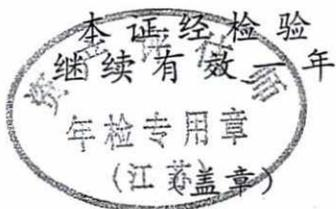 本证经检验
继续有效一年
资产评估师
年检专用章
(江苏)
(盖章)